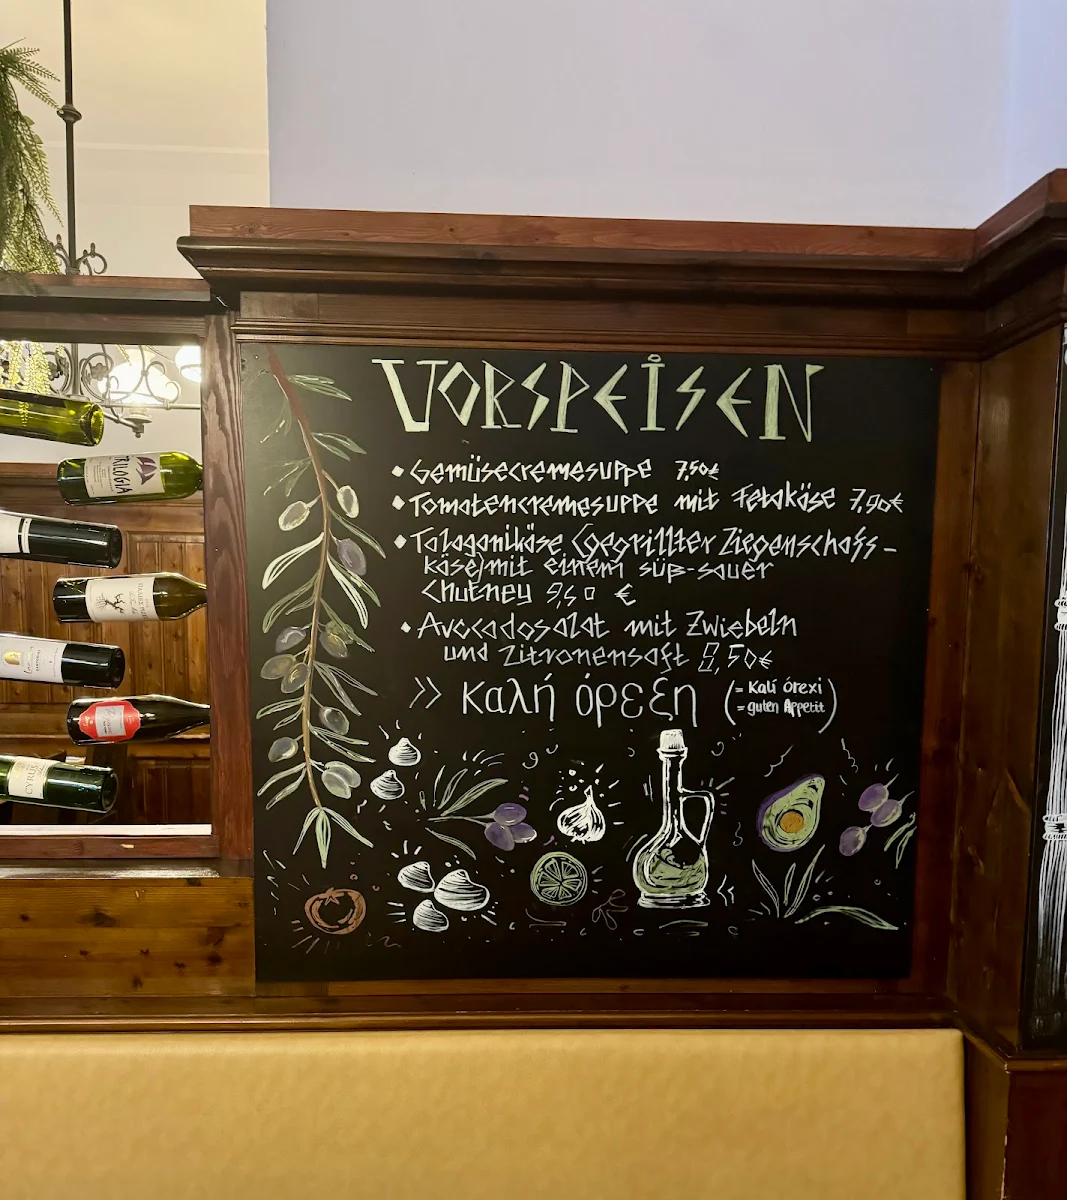 VORSPEISEN
• Gemüsecremesuppe 7,50€
• Tomatencremesuppe mit Fetakäse 7,90€
• Talaganikäse (gegrillter Ziegenschafs-
käse) mit einem süß-sauer
Chutney 9,50 €
• Avocadosalat mit Zwiebeln
und Zitronensaft 8,50€
>> Καλή όρεξη (= Kalí órexi
= guten Appetit)
TRILOGIA